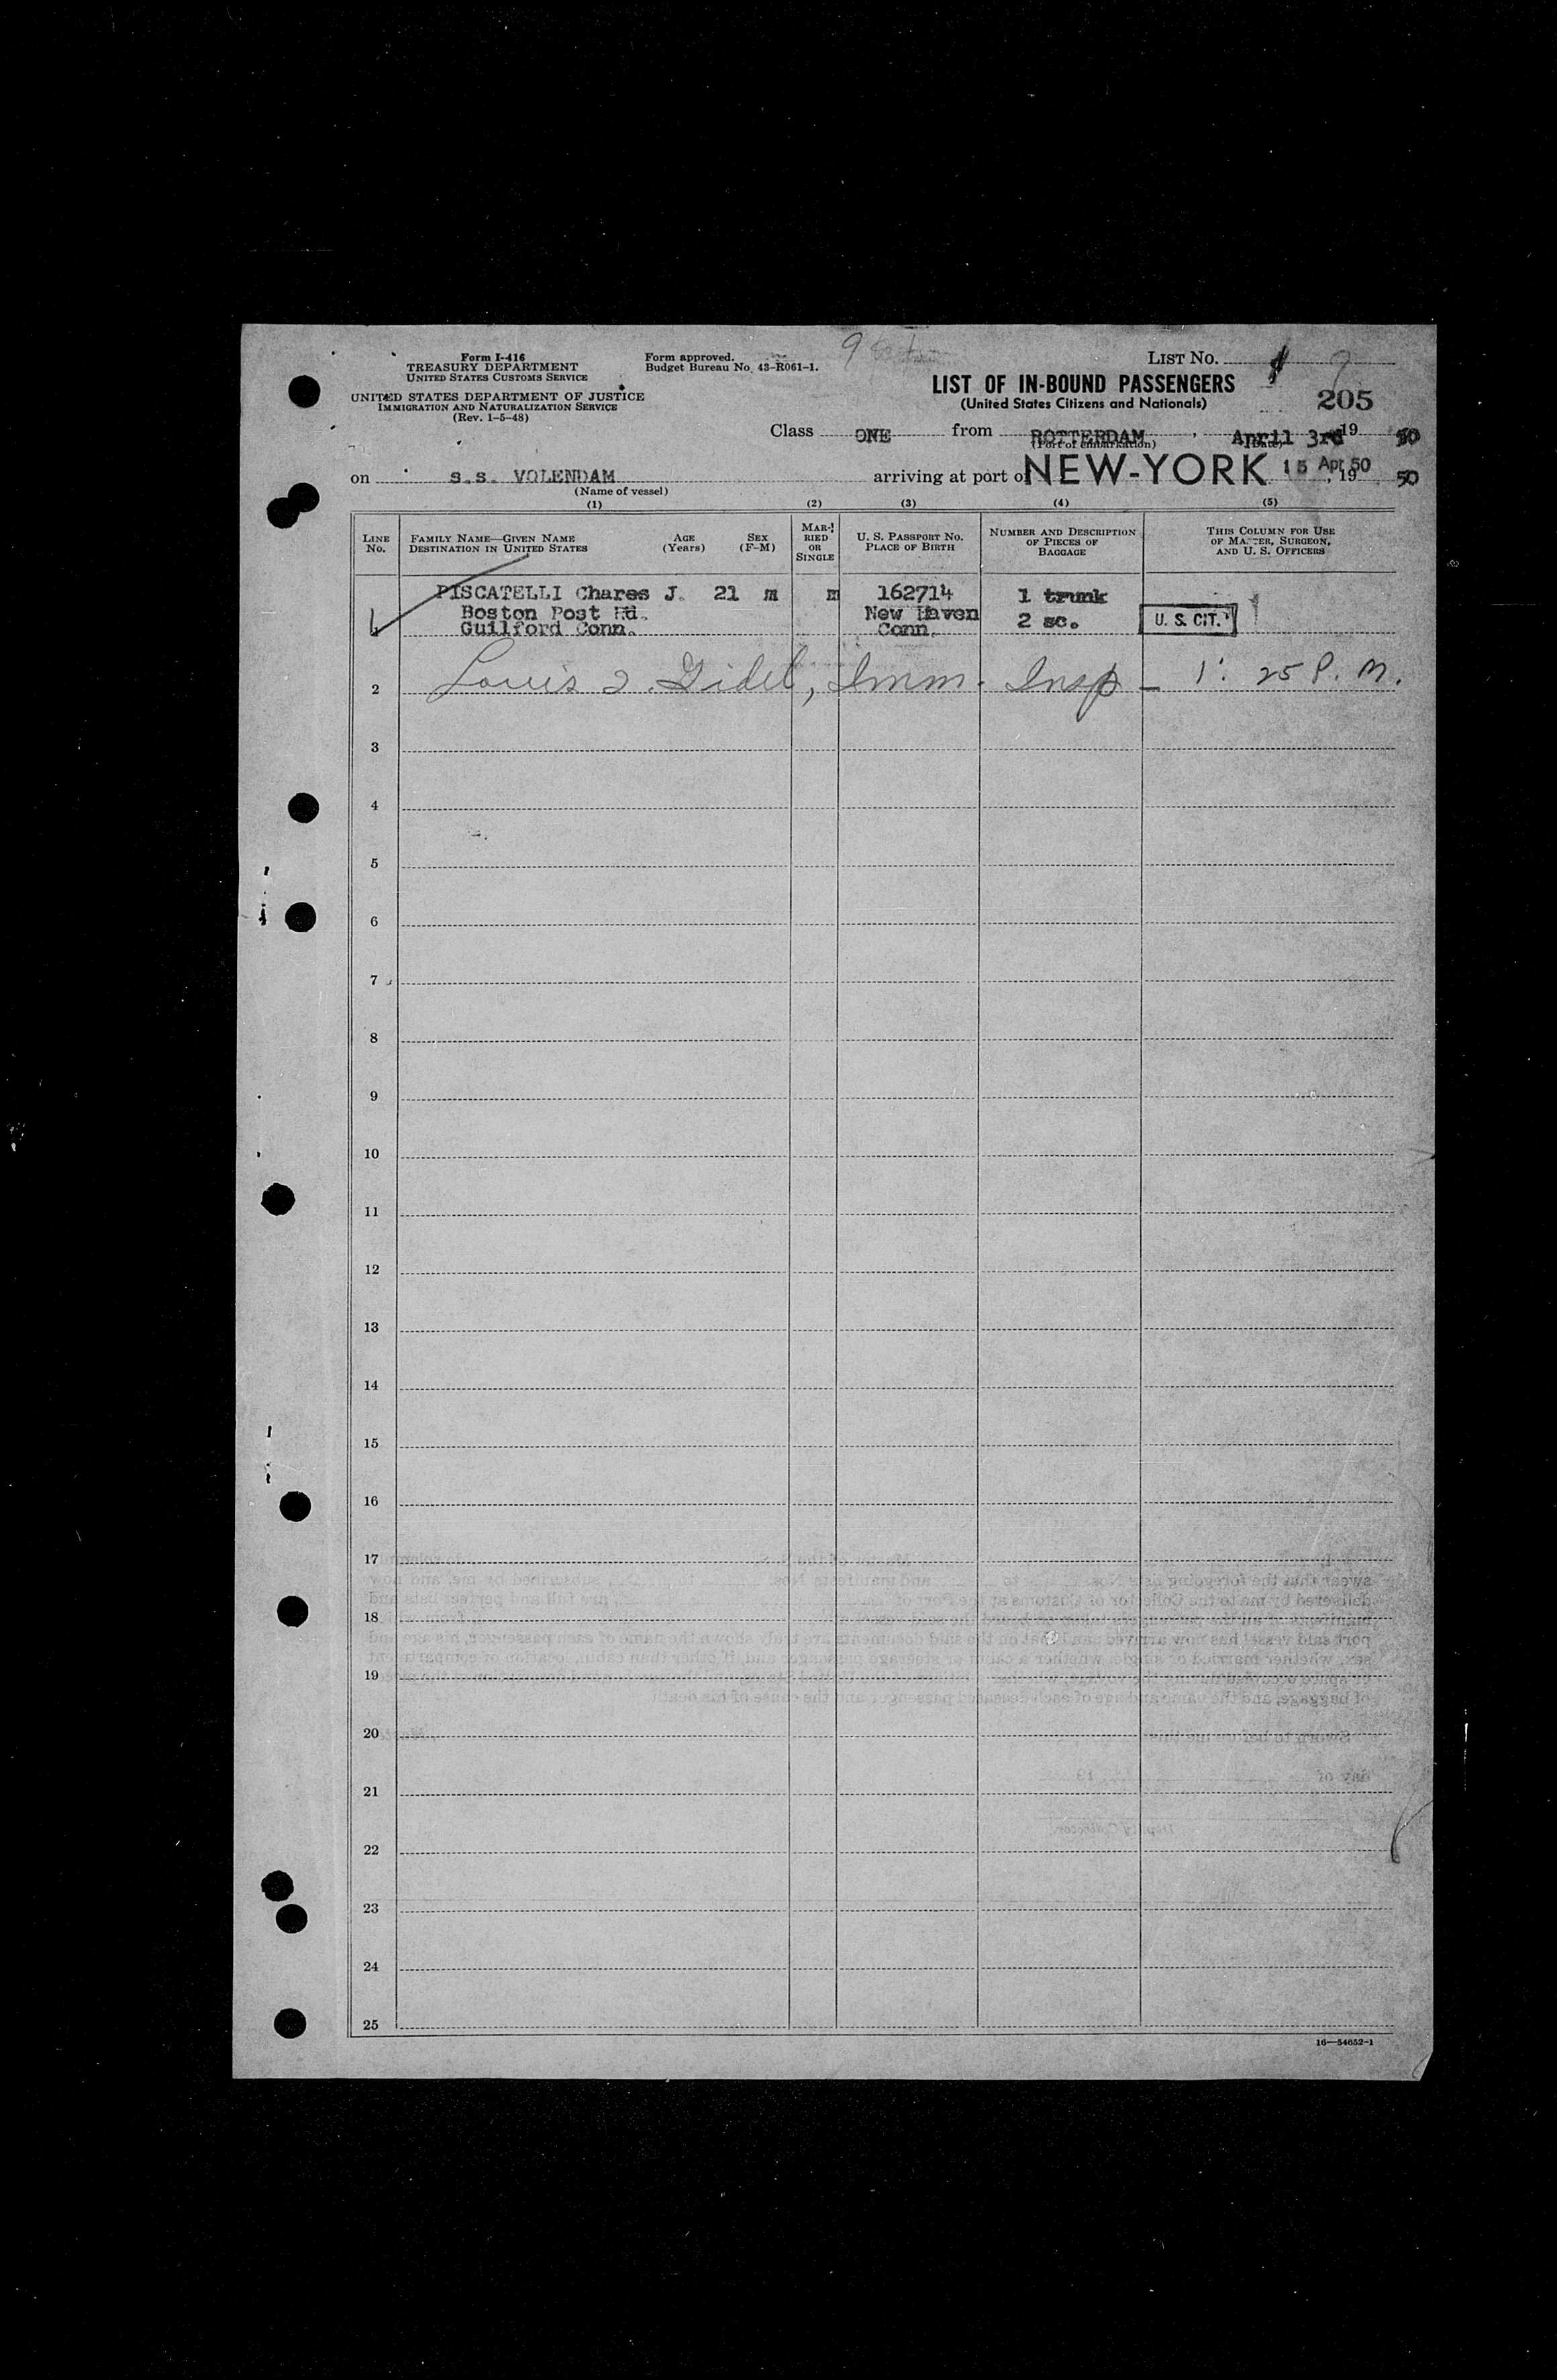 Form I-416
TREASURY DEPARTMENT
UNITED STATES CUSTOMS SERVICE
UNITED STATES DEPARTMENT OF JUSTICE
IMMIGRATION AND NATURALIZATION SERVICE
(Rev. 1-5-48)
Form approved.
Budget Bureau No. 43-R061-1.
9
LIST NO. 9
LIST OF IN-BOUND PASSENGERS
(United States Citizens and Nationals)
205
Class ONE from ROTTERDAM, April 3rd 19 50
(Port of embarkation) (Date)
on s.s. VOLENDAM arriving at port of NEW-YORK 15 Apr 50, 19 50
(Name of vessel)
(1) (2) (3) (4) (5)
LINE No. FAMILY NAME—GIVEN NAME DESTINATION IN UNITED STATES AGE (Years) SEX (F-M) MARRIED OR SINGLE U. S. PASSPORT NO. PLACE OF BIRTH NUMBER AND DESCRIPTION OF PIECES OF BAGGAGE THIS COLUMN FOR USE OF MASTER, SURGEON, AND U. S. OFFICERS
PISCATELLI Chares J. 21 m m 162714 1 trunk
Boston Post Rd. New Haven 2 sc. U. S. CIT.
Guilford Conn. Conn.
2 Louis Gidel, Imm. Insp — 1:25 P.M.
3
4
5
6
7
8
9
10
11
12
13
14
15
16
17
18
19
20
21
22
23
24
25
16—54652-1